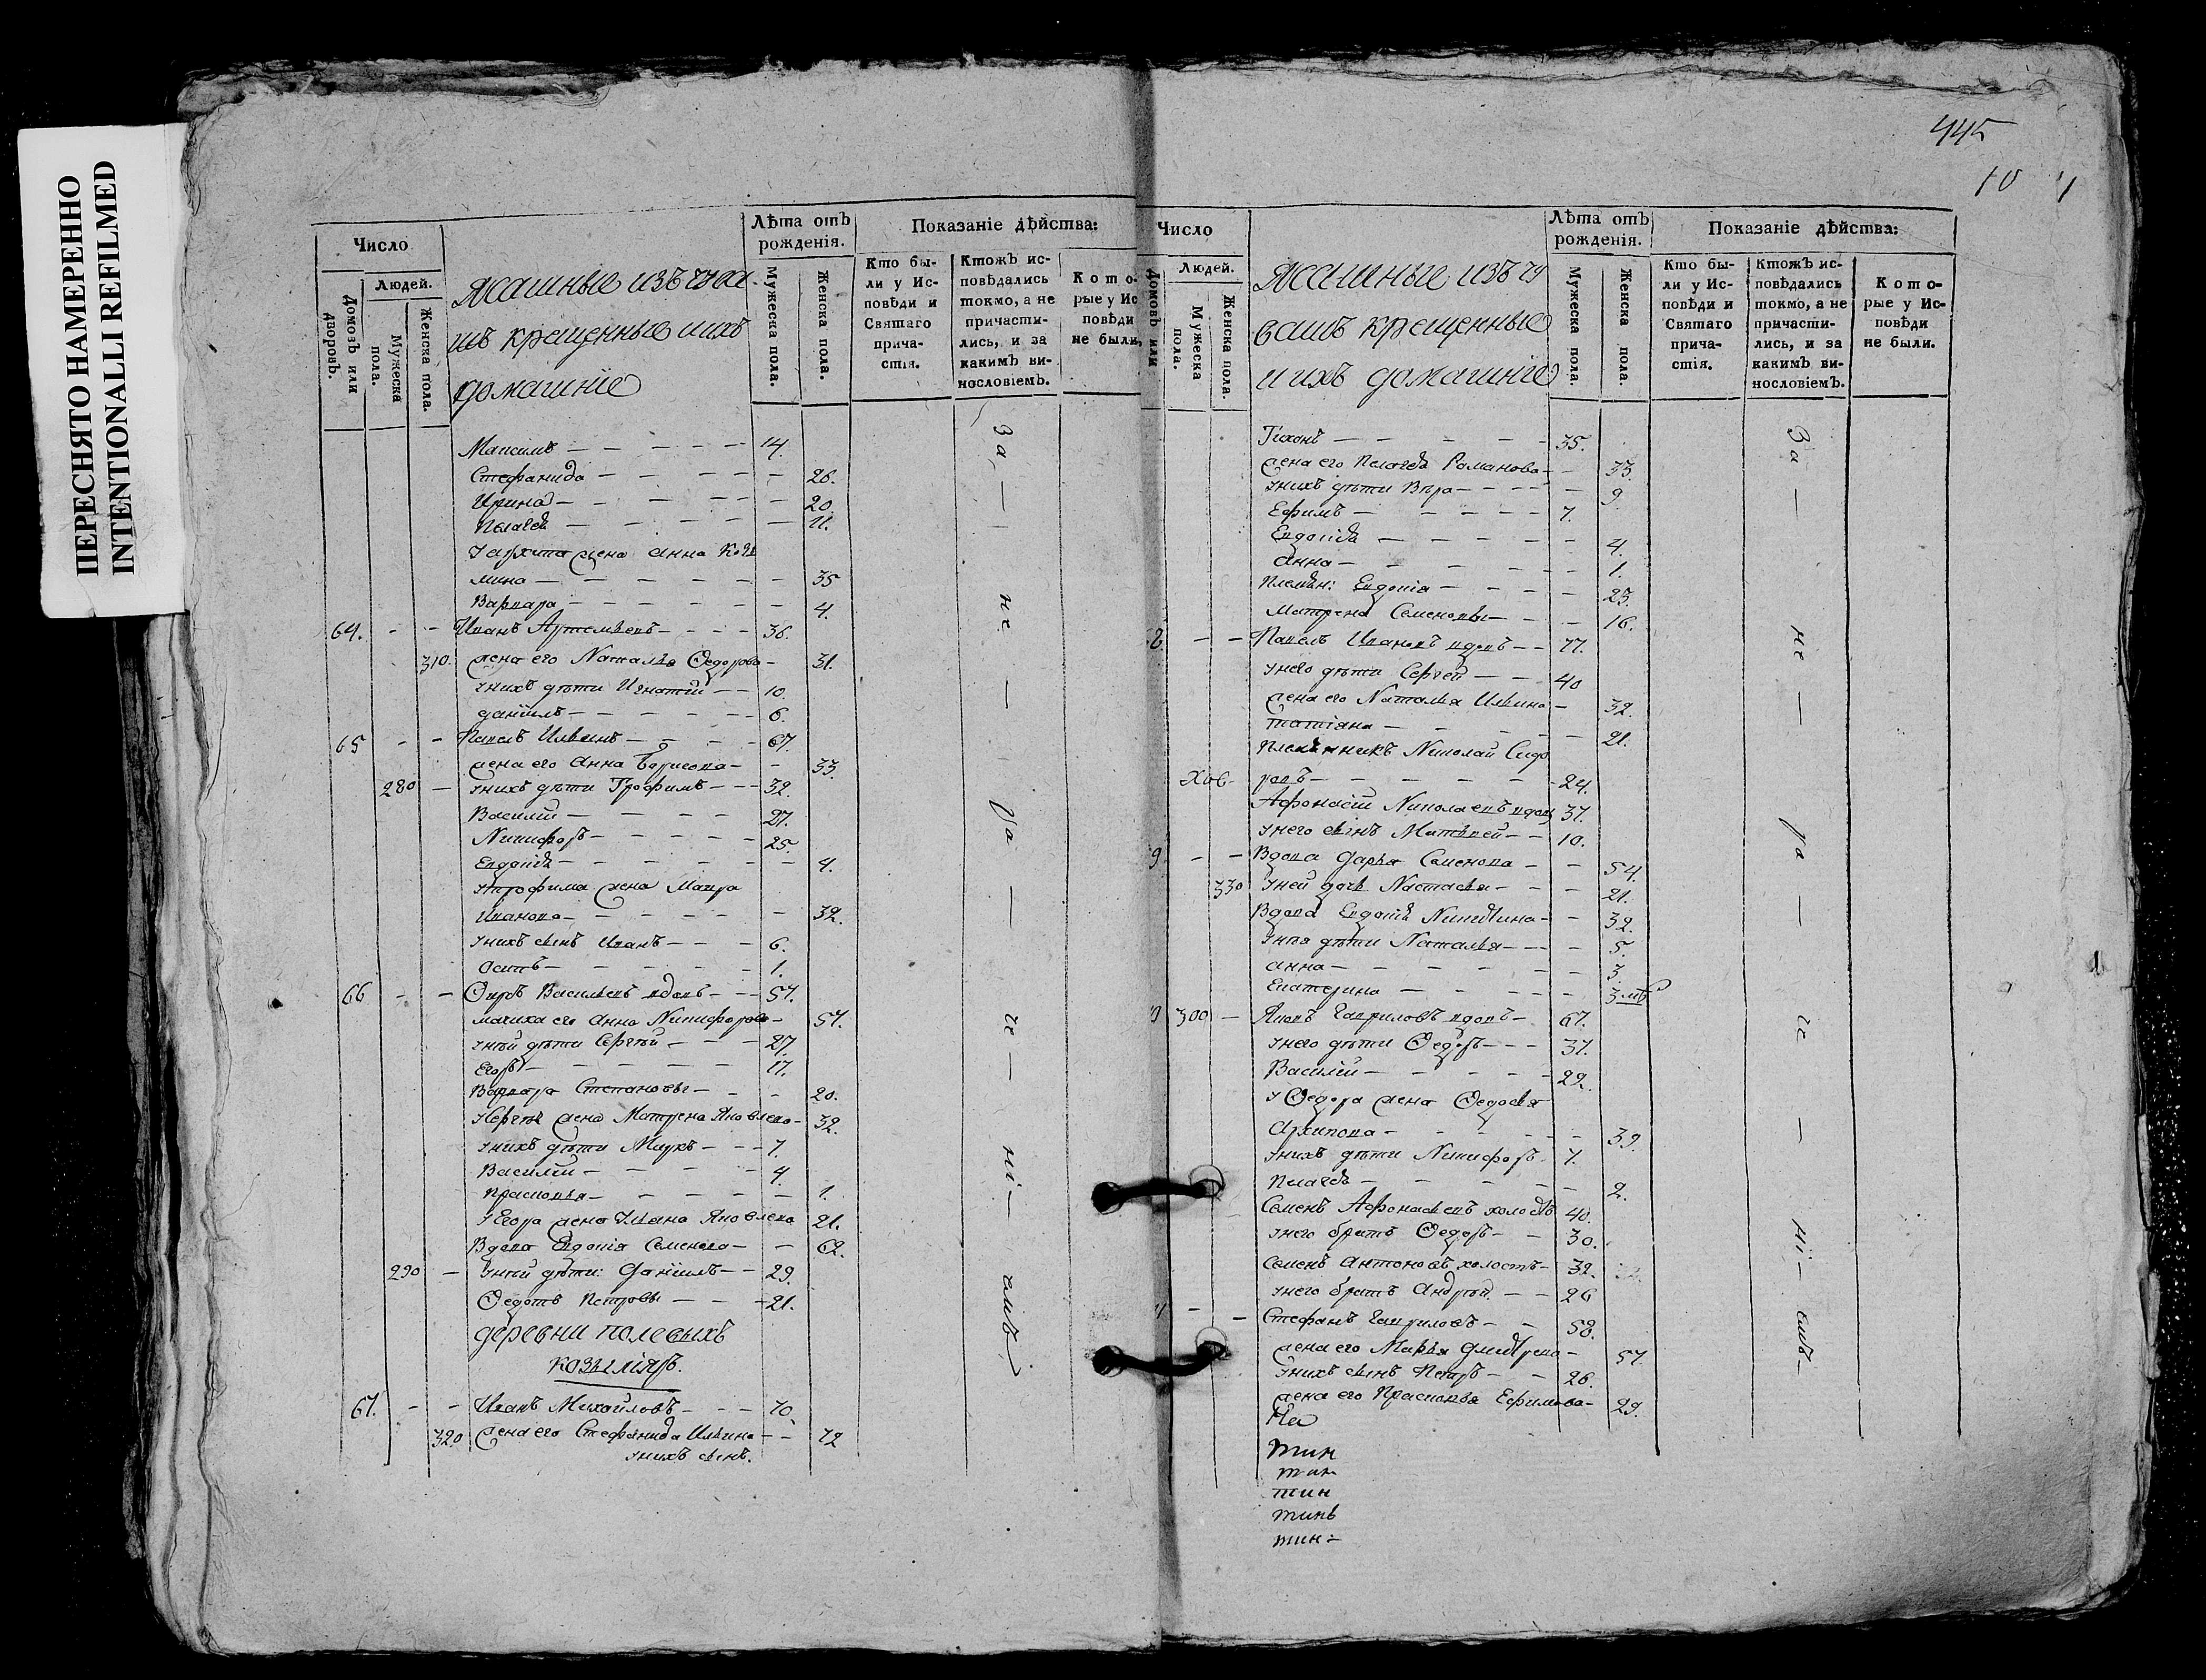 ПЕРЕСНЯТО НАМЕРЕННО
INTENTIONALLI REFILMED
Число
Людей.
Домовъ или дворовъ.
Мужеска пола.
Женска пола.
Ясашные изъ чува
шъ крещенные и ихъ
домашніе
Лѣта отъ рожденія.
Мужеска пола.
Женска пола.
Показаніе дѣйства:
Кто бы-
ли у Ис-
повѣди и
Святаго
прича-
стія.
Ктожъ ис-
повѣдались
токмо, а не
причасти-
лись, и за
какимъ ви-
нословіемъ.
Кото-
рые у Ис
повѣди
не были,
Максимъ — — — — — 14.
Стефанида — — — — 26.
Ирина — — — — — 20.
Пелагея — — — — — 11.
у жена Анна Коз
мина — — — — — 35
Варвара — — — — — 4.
64. - - Иванъ Артемьевъ — — — 36.
310. жена его Наталья Ѳедорова — 31.
у нихъ дѣти Игнатій — — 10.
Даніилъ — — — — — 6.
65 - - Павелъ Ильинъ — — — 67.
жена его Анна Борисова — - 33.
280 — у нихъ дѣти Трофимъ — — 32.
Василій — — — — 27.
Никифоръ — — — — 25.
Евдокія — — — — — 4.
у Трофима жена Мавра
Иванова — — — — — 32.
у нихъ сынъ Иванъ — — — 6.
Осипъ — — — — — 1.
66 - - Васильевъ вдовъ — — 57.
мачиха его Анна Никифорова — 57.
у ней дѣти Сергѣй — — — 27.
Егоръ — — — — — 17.
Варвара Степановы — — — 20.
у Сергѣя жена Матрена Яковлева — 32.
у нихъ дѣти Маркъ — — — 7.
Василій — — — — 4.
Прасковья — — — — — 1.
у Егора жена Яковлева 21.
Вдова Евдокія Семенова — — 62.
290 — у ней дѣти: Даніилъ — — 29.
Ѳедотъ Петровы — — — 21.
деревни полевыхъ
козылiяръ.
67. - - Иванъ Михайловъ — — — 70.
320 жена его Стефанида Ильина — — 72
у нихъ сынъ.
За — не — ра — че — ні — емъ
445
10
1
Число
Людей.
Домовъ или
Мужеска пола.
Женска пола.
Ясашные изъ чу
вашъ крещенные
и ихъ домашніе
Лѣта отъ рожденія.
Мужеска пола.
Женска пола.
Показаніе дѣйства:
Кто бы-
ли у Ис-
повѣди и
Святаго
прича-
стія.
Ктожъ ис-
повѣдались
токмо, а не
причасти-
лись, и за
какимъ ви-
нословіемъ.
Кото-
рые у Ис-
повѣди
не были.
Тихонъ — — — — 35.
жена его Пелагея Романова — 33.
у нихъ дѣти Вѣра — — — — 9.
Ефимъ — — — — — 7.
Евдокія — — — — — 4.
Анна — — — — — 1.
Племян: Евдокія — — — — 23.
Матрена Семеновы — — — 16.
8. - - Павелъ Ивановъ вдовъ — — 77.
у него дѣти Сергѣй — — 40
жена его Наталья Ильина — 32.
Татіана — — — — — 21.
Племянникъ Николай Сидо
ровъ — — — — — 24.
Афонасій Николаевъ вдовъ 37.
у него сынъ Матвѣй — — 10.
9. - - Вдова Дарья Семенова — — 54.
330 у ней дочь Настасья — — — 21.
Вдова Евдокія Никитина — — 32.
у нея дѣти Наталья — — — 5.
Анна — — — — — — 3.
Екатерина — — — — 3 мѣ
300 — Яковъ Гавриловъ вдовъ — 67.
у него дѣти Ѳедоръ — — — 37.
Василій — — — — — 29.
у Ѳедора жена Ѳедосья
Архипова — — — — — 39.
у нихъ дѣти Никифоръ — 7.
Пелагея — — — — — 2.
Семенъ Афонасьевъ холостъ 40.
у него братъ Ѳедоръ — — 30.
Семенъ Антоновъ холостъ — 32.
у него братъ Андрей — — 26
- — Стефанъ Гавриловъ — — 58.
жена его Марья Дмитрева — 57.
у нихъ сынъ Петръ — — 26.
жена его Прасковья Ефимова — 29.
За — не — ра — че — ні — емъ —
тин
тин
тин
тинь
тин-